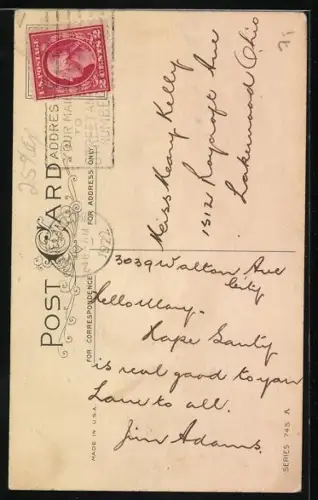 U.S. POSTAGE
2 CENTS 2
ADDRESS
YOUR MAIL
TO
STREET AND
NUMBER
1922
POST CARD
FOR CORRESPONDENCE
FOR ADDRESS ONLY
MADE IN U.S.A.
Miss Mary Kelly
1512 Roycroft Ave
Lakewood Ohio
3039 Walton Ave
City
Hello Mary.
Hape Santy
is real good to you
Love to all.
Jim Adams.
SERIES 745 A